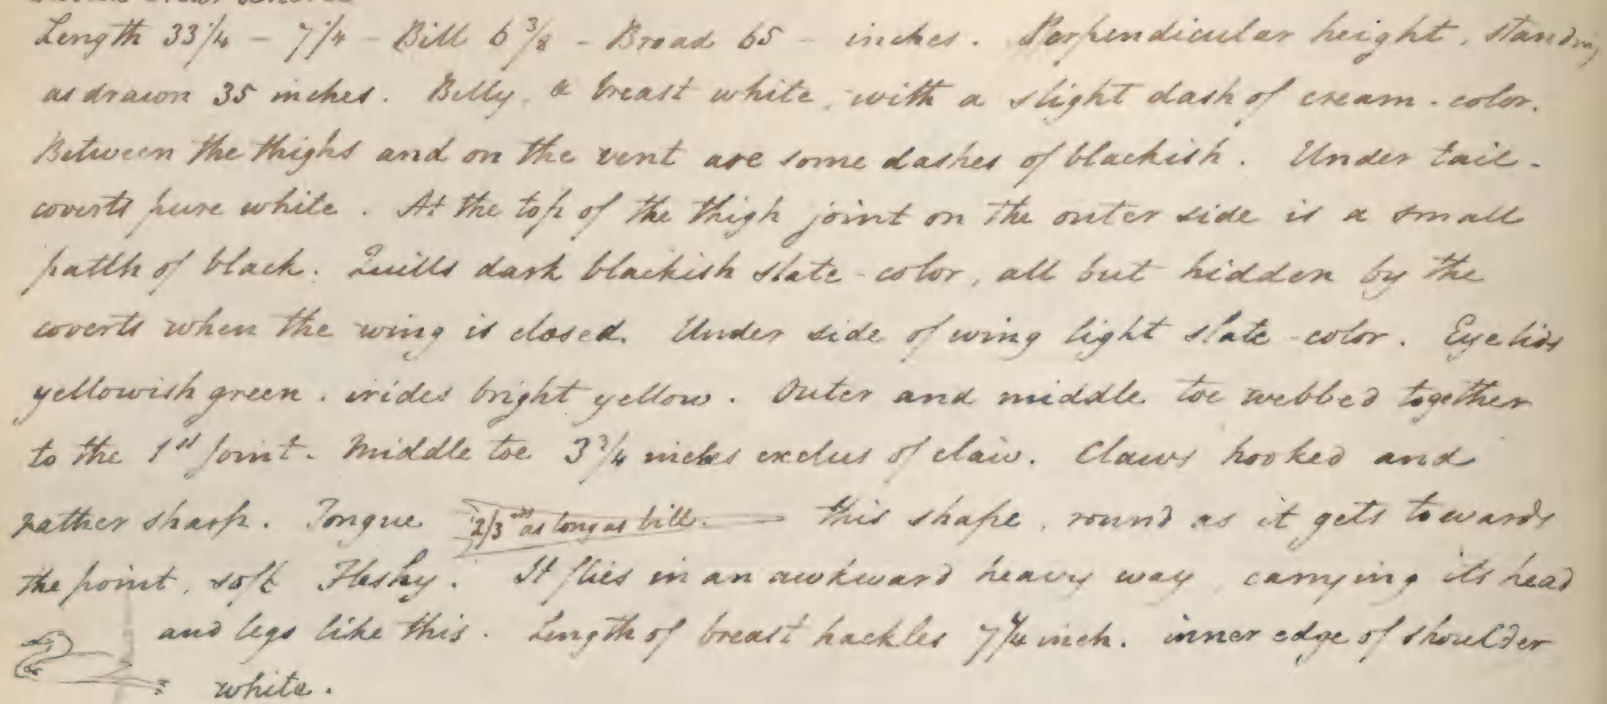 Length 33 1/4 - 7 1/4 - Bill 6 3/8 - Broad 65 - inches. Perpendicular height, standing
as drawn 35 inches. Belly, & breast white, with a slight dash of cream-color.
Between the thighs and on the vent are some dashes of blackish. Under tail-
coverts pure white. At the top of the thigh joint on the outer side is a small
patch of black. Quills dark blackish slate-color, all but hidden by the
coverts when the wing is closed. Under side of wing light slate-color. Eyelids
yellowish green. irides bright yellow. Outer and middle toe webbed together
to the 1st joint. Middle toe 3 3/4 inches exclus of claw. Claws hooked and
rather sharp. Tongue 2/3rds as long as bill. this shape, round as it gets towards
the point, soft Fleshy. It flies in an awkward heavy way, carrying its head
and legs like this. Length of breast hackles 7 1/4 inch. inner edge of shoulder
white.